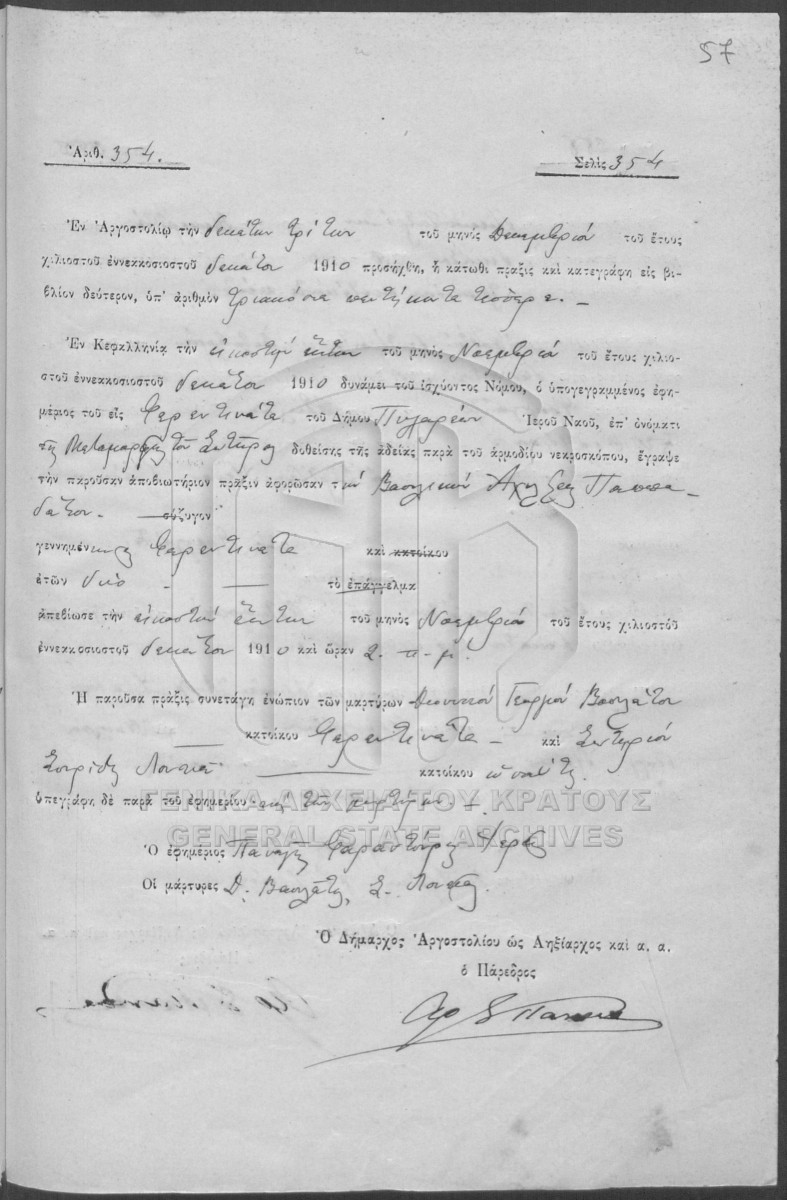 57
Ἀριθ. 354.
Σελὶς 354
Ἐν Ἀργοστολίῳ τὴν δεκάτην τρίτην τοῦ μηνὸς Δεκεμβρίου τοῦ ἔτους
χιλιοστοῦ ἐννεακοσιοστοῦ δεκάτου 1910 προσήχθη, ἡ κάτωθι πρᾶξις καὶ κατεγράφη εἰς βι-
βλίον δεύτερον, ὑπ' ἀριθμὸν τριακόσια πεντήκοντα τέσσερα. —
Ἐν Κεφαλληνίᾳ τὴν εἰκοστὴν ἕκτην τοῦ μηνὸς Νοεμβρίου τοῦ ἔτους χιλιο-
στοῦ ἐννεακοσιοστοῦ δεκάτου 1910 δυνάμει τοῦ ἰσχύοντος Νόμου, ὁ ὑπογεγραμμένος ἐφη-
μέριος τοῦ εἰς Φερεντινάτα τοῦ Δήμου Πυλαρέων Ἱεροῦ Ναοῦ, ἐπ' ὀνόματι
τῆς Μεταμορφ. τοῦ Σωτῆρος δοθείσης τῆς ἀδείας παρὰ τοῦ ἁρμοδίου νεκροσκόπου, ἔγραψε
τὴν παροῦσαν ἀποβιωτήριον πρᾶξιν ἀφορῶσαν τὴν Βασιλικὴν Παππα-
δάτου. — σύζυγον
γεννημένην Φαρεντινάτα καὶ κατοίκου
ἐτῶν δύο — τὸ ἐπάγγελμα
ἀπεβίωσε τὴν εἰκοστὴν ἕκτην τοῦ μηνὸς Νοεμβρίου τοῦ ἔτους χιλιοστοῦ
ἐννεακοσιοστοῦ δεκάτου 1910 καὶ ὥραν 2. π.μ.
Ἡ παροῦσα πρᾶξις συνετάγη ἐνώπιον τῶν μαρτύρων Διονυσίου Γεωργίου Βασιλάτου
κατοίκου Φερεντινάτα — καὶ Σωτηρίου
Σπυρίδ. Λουκᾶ — κατοίκου
ὑπεγράφη δὲ παρὰ τοῦ ἐφημερίου καὶ τῶν μαρτύρων —.
ΓΕΝΙΚΑ ΑΡΧΕΙΑ ΤΟΥ ΚΡΑΤΟΥΣ
GENERAL STATE ARCHIVES
Ὁ ἐφημέριος Παναγῆς Φαραντάτος Ἱερεὺς
Οἱ μάρτυρες Δ. Βασιλάτος, Σ. Λουκᾶς.
Ὁ Δήμαρχος Ἀργοστολίου ὡς Ληξίαρχος καὶ α. α.
ὁ Πάρεδρος